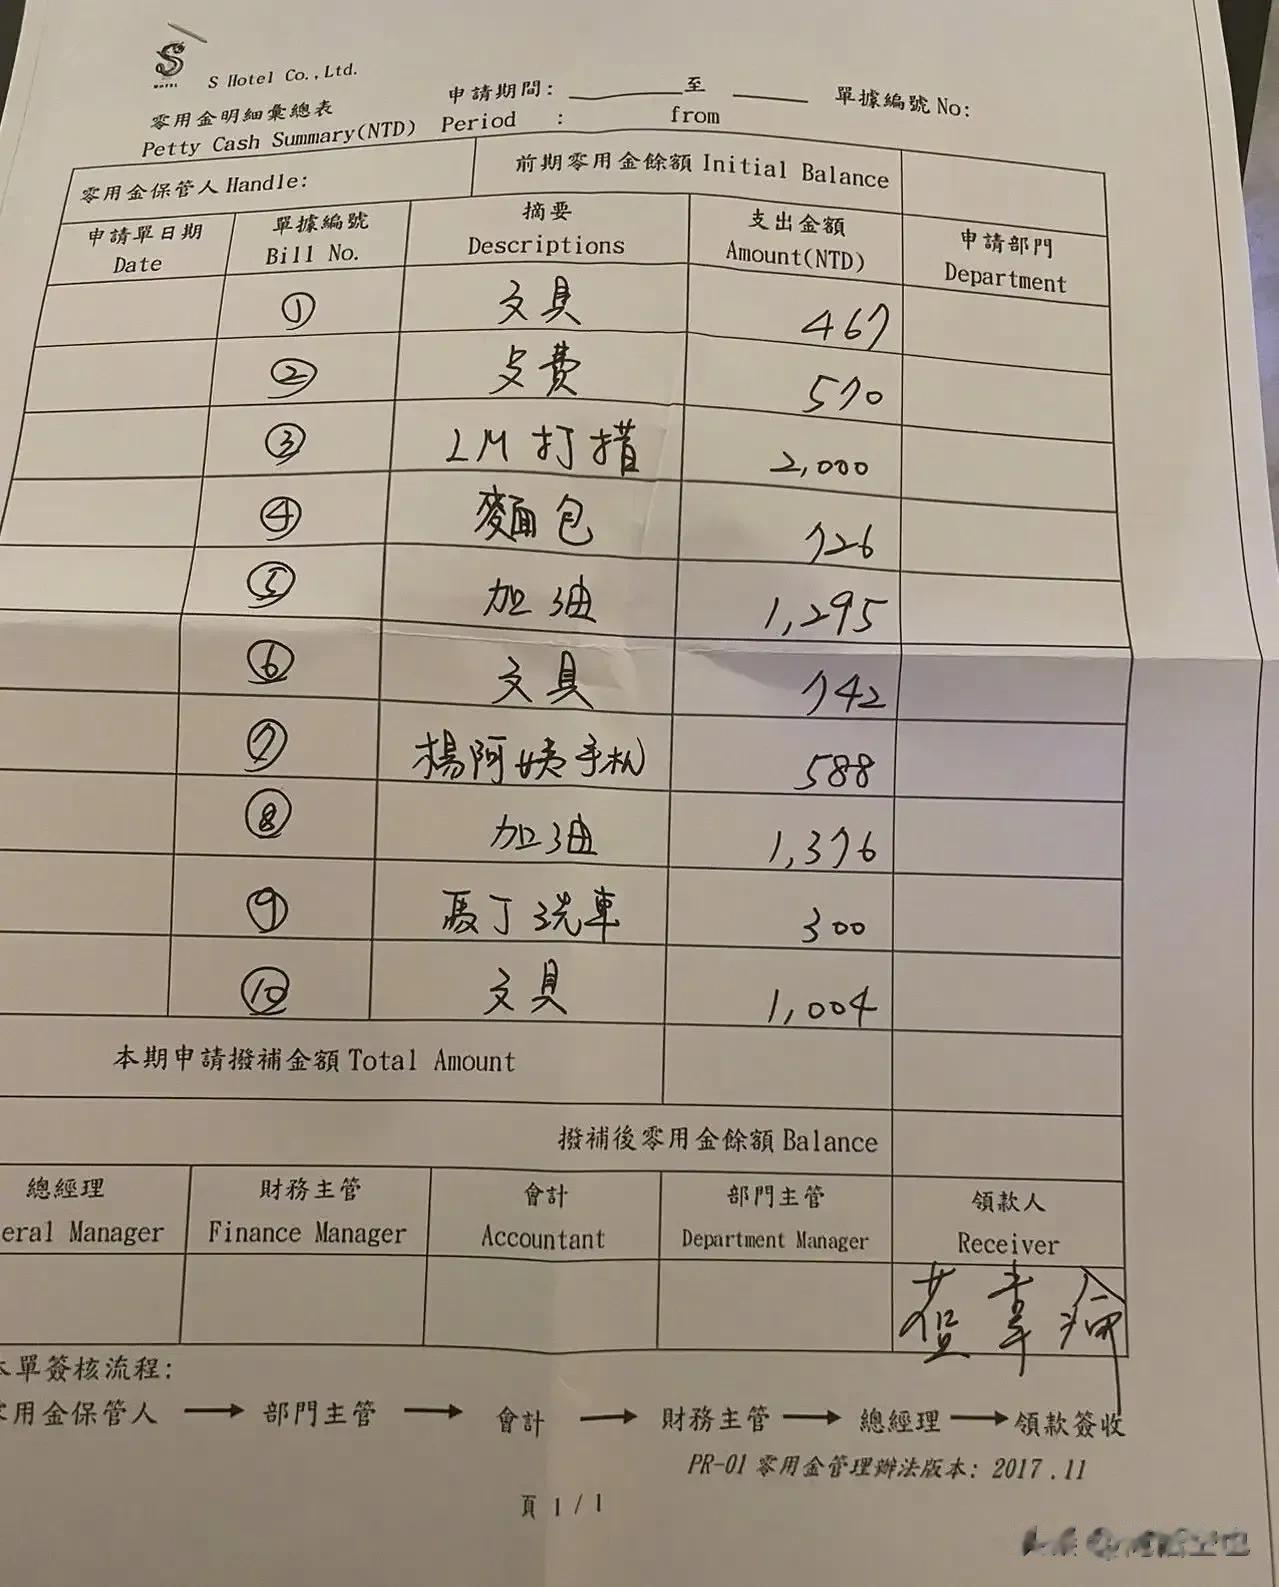 S
HOTEL
S Hotel Co.,Ltd.
零用金明細彙總表
申請期間: 至
單據編號 No:
Petty Cash Summary(NTD) Period : from
零用金保管人 Handle:
前期零用金餘額 Initial Balance
申請單日期 單據編號 摘要 支出金額 申請部門
Date Bill No. Descriptions Amount(NTD) Department
① 文具 467
② 支費 570
③ LM 打措 2,000
④ 麵包 726
⑤ 加油 1,295
⑥ 文具 742
⑦ 楊阿姨手机 588
⑧ 加油 1,376
⑨ 馬丁洗車 300
⑩ 文具 1,004
本期申請撥補金額 Total Amount
撥補後零用金餘額 Balance
總經理 財務主管 會計 部門主管 領款人
eral Manager Finance Manager Accountant Department Manager Receiver
本單簽核流程:
零用金保管人 → 部門主管 → 會計 → 財務主管 → 總經理 → 領款簽收
PR-01 零用金管理辦法版本: 2017.11
頁 1 / 1